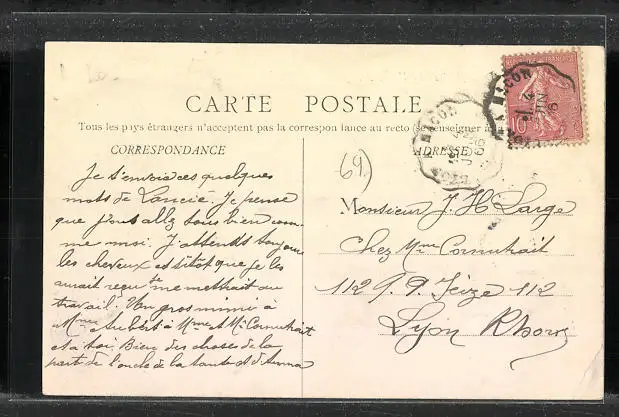 CARTE POSTALE
Tous les pays étrangers n'acceptent pas la correspondance au recto (se renseigner à
CORRESPONDANCE
ADRESSE
10
A MACON
LYON A MACON
69
Je t'envoie ces quelques
mots de Lancié. Je pense
que vous allez tous bien com-
me moi. J'attends toujours
les cheveux et sitôt que je les
aurait reçu je me mettrait au
travail. Un gros mimi à
Mme Aubert à Mme et Mr Cornutrait
et à toi. Bien des choses de la
part de l'oncle de la tante et d'Anna
Monsieur J. H. Large
Chez Mme Cornutrait
112 112
Lyon Rhône